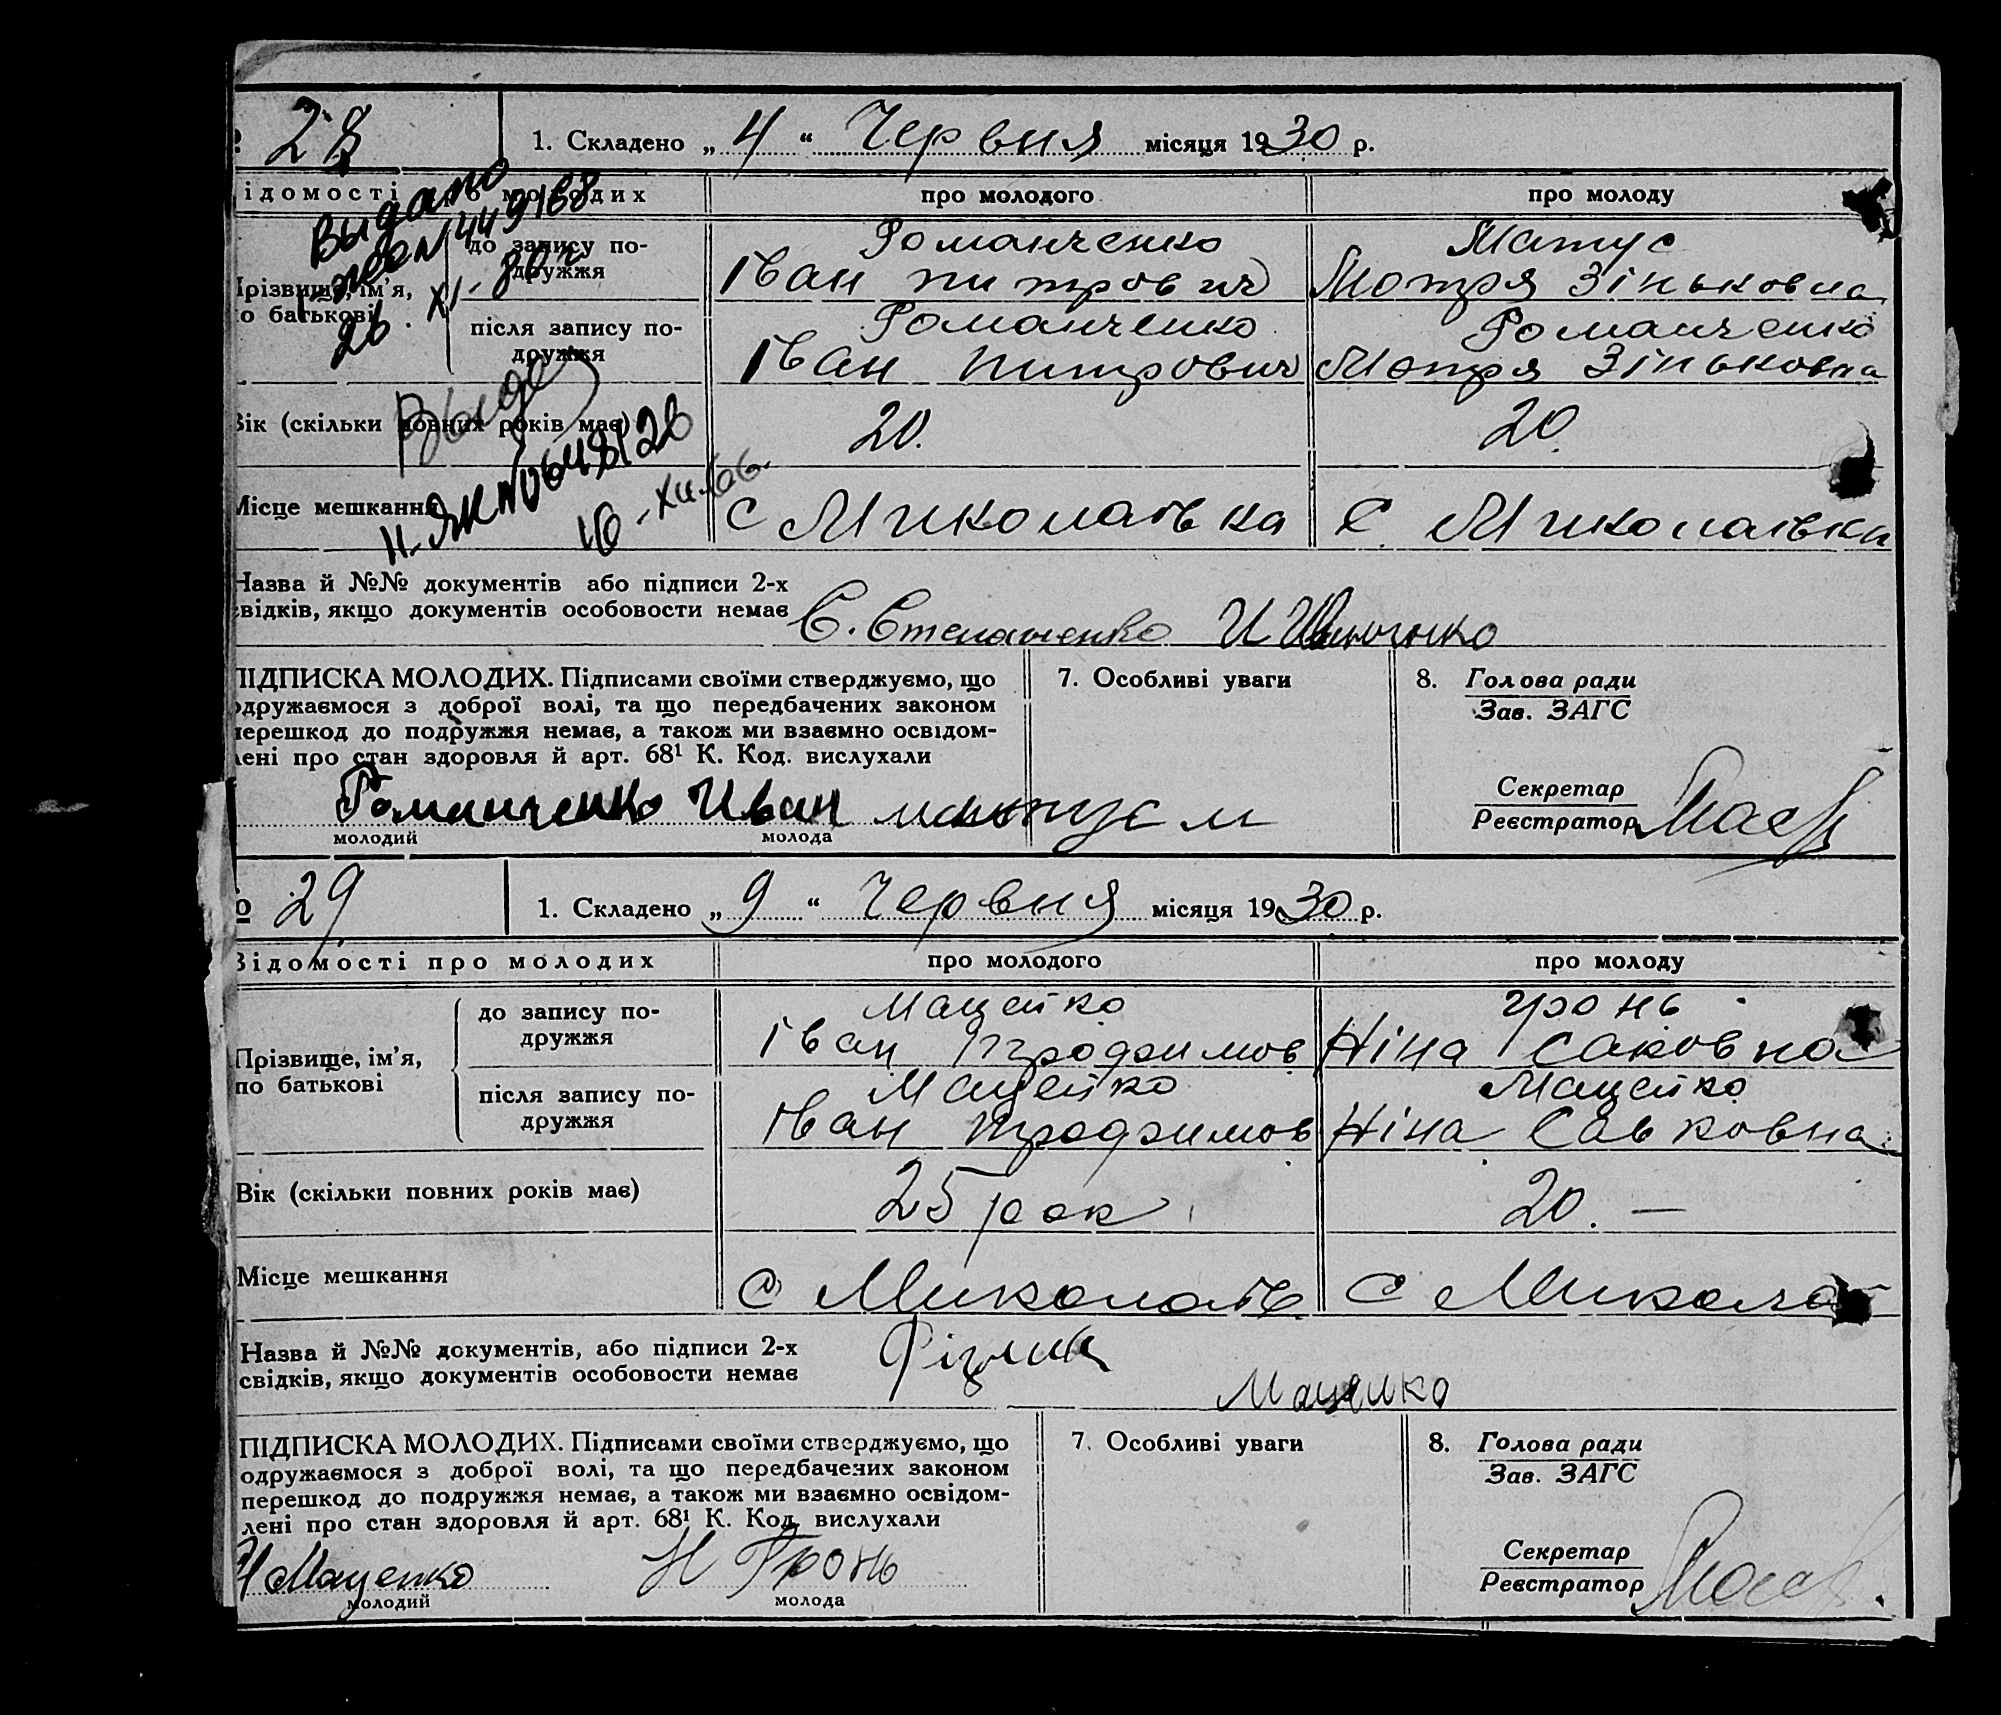 28 1. Складено „ 4 “ Червня місяця 1930 р.
ідомості про молодих про молодого про молоду
Прізвище, ім’я, по батькові
до запису подружжя
Романченко Матус
Іван питрович Мотря Зіньковна
після запису подружжя
Романченко Романченко
Іван Питрович Мотря Зіньковна
Видано
449168
26. XI-80 г
Вік (скільки повних років має) 20. 20.
Видан
н. ЯК № 0648126
10-XII-66.
Місце мешкання с Миколаївка с. Миколаївки
Назва й №№ документів або підписи 2-х
свідків, якщо документів особовости немає Є. Степаненко И
ПІДПИСКА МОЛОДИХ. Підписами своїми стверджуємо, що
одружаємося з доброї волі, та що передбачених законом
перешкод до подружжя немає, а також ми взаємно освідом-
лені про стан здоровля й арт. 68¹ К. Код. вислухали
Романченко Иван
молодий молода
7. Особливі уваги
8. Голова ради
Зав. ЗАГС
Секретар
Реєстратор
№ 29 1. Складено „ 9 “ Червня місяця 1930 р.
Відомості про молодих про молодого про молоду
Прізвище, ім’я,
по батькові
до запису по-
дружжя
Мацейко Гронь
Іван Трофимов Ніна Саковна
після запису по-
дружжя
Мацейко Мацейко
Іван Трофимов Ніна Савковна
Вік (скільки повних років має) 25 рок 20. —
Місце мешкання с Миколаїв с Микола
Назва й №№ документів, або підписи 2-х
свідків, якщо документів особовости немає
Маценко
ПІДПИСКА МОЛОДИХ. Підписами своїми стверджуємо, що
одружаємося з доброї волі, та що передбачених законом
перешкод до подружжя немає, а також ми взаємно освідом-
лені про стан здоровля й арт. 68¹ К. Код. вислухали
И Маценко Н Гронь
молодий молода
7. Особливі уваги
8. Голова ради
Зав. ЗАГС
Секретар
Реєстратор